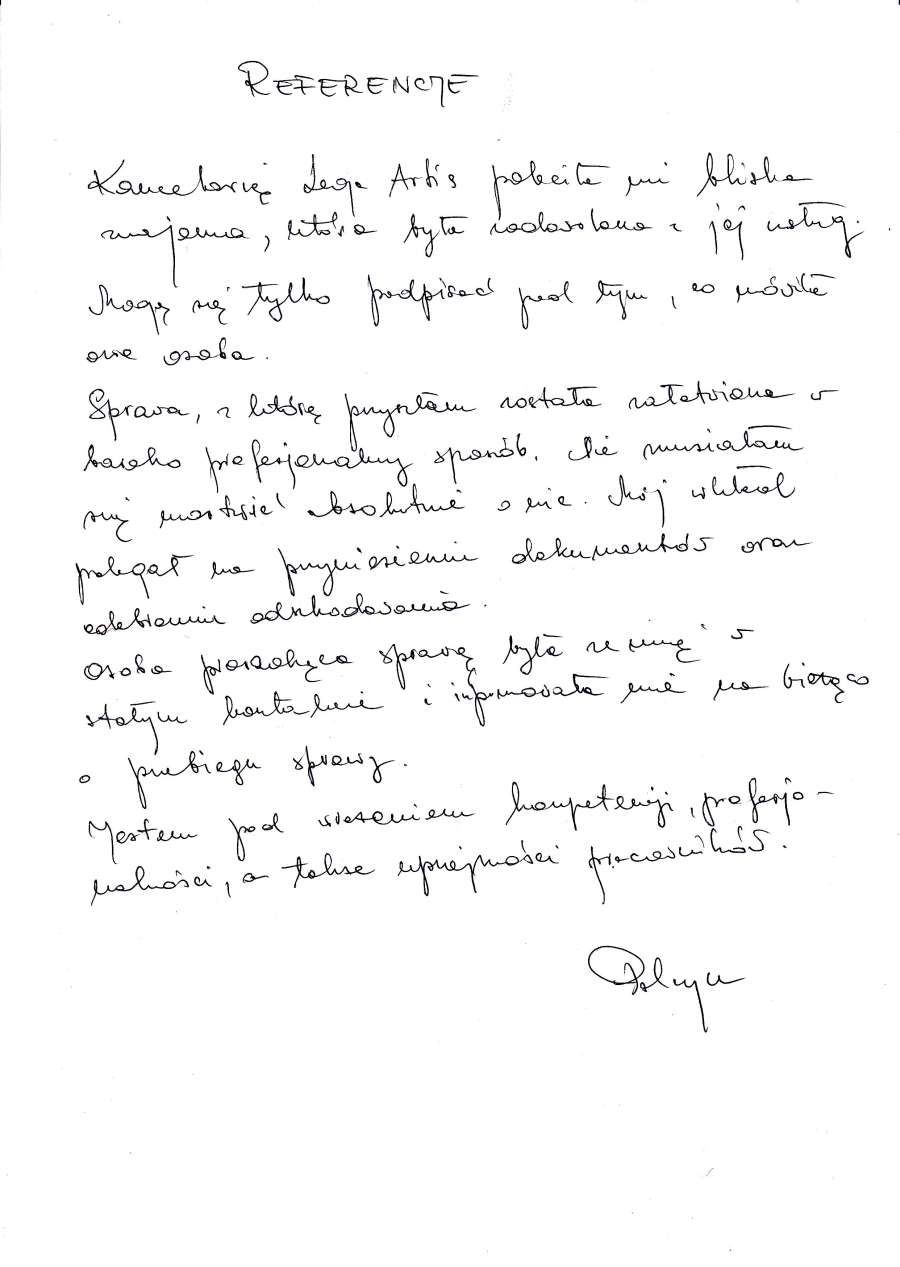 REFERENCJE
Kancelarię Lege Artis poleciła mi bliska
znajoma, która była zadowolona z jej usług.
Mogę się tylko podpisać pod tym, co mówiła
owa osoba.
Sprawa, z którą przyszłam została załatwiona w
bardzo profesjonalny sposób. Nie musiałam
się martwić absolutnie o nic. Mój wkład
polegał na przyniesieniu dokumentów oraz
odebraniu odszkodowania.
Osoba prowadząca sprawę była ze mną w
stałym kontakcie i informowała mnie na bieżąco
o przebiegu sprawy.
Jestem pod wrażeniem kompetencji, profesjo-
nalności, a także uprzejmości pracowników.